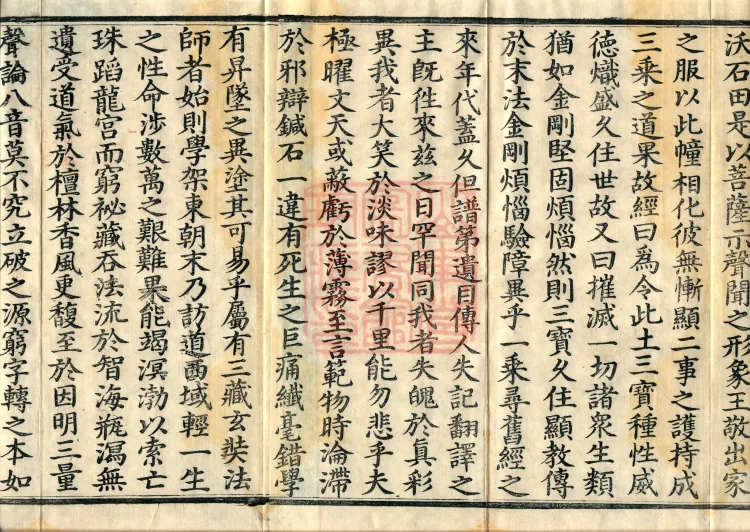 沃石田是以菩薩示聲聞之形象王敬出家
之服以此幢相化彼無慚顯二事之護持成
三乘之道果故經曰為令此土三寶種性威
德熾盛久住世故又曰摧滅一切諸衆生類
猶如金剛堅固煩惱然則三寶久住顯教傳
於末法金剛煩惱驗障異乎一乘尋舊經之
來年代蓋久但譜第遺目傳人失記翻譯之
主旣往來茲之日罕聞同我者失魄於真彩
異我者大笑於淡味謬以千里能勿悲乎夫
極曜文天或蔽虧於薄霧至言範物時淪滯
於邪辯鍼石一違有死生之巨痛纖毫錯學
有昇墜之異塗其可易乎屬有三藏玄奘法
師者始則學架東朝末乃訪道西域輕一生
之性命涉數萬之艱難果能竭溟渤以索亡
珠蹈龍宮而窮祕藏吞法流於智海瓶瀉無
遺受道氣於檀林香風更馥至於因明三量
聲論八音莫不究立破之源窮字轉之本如